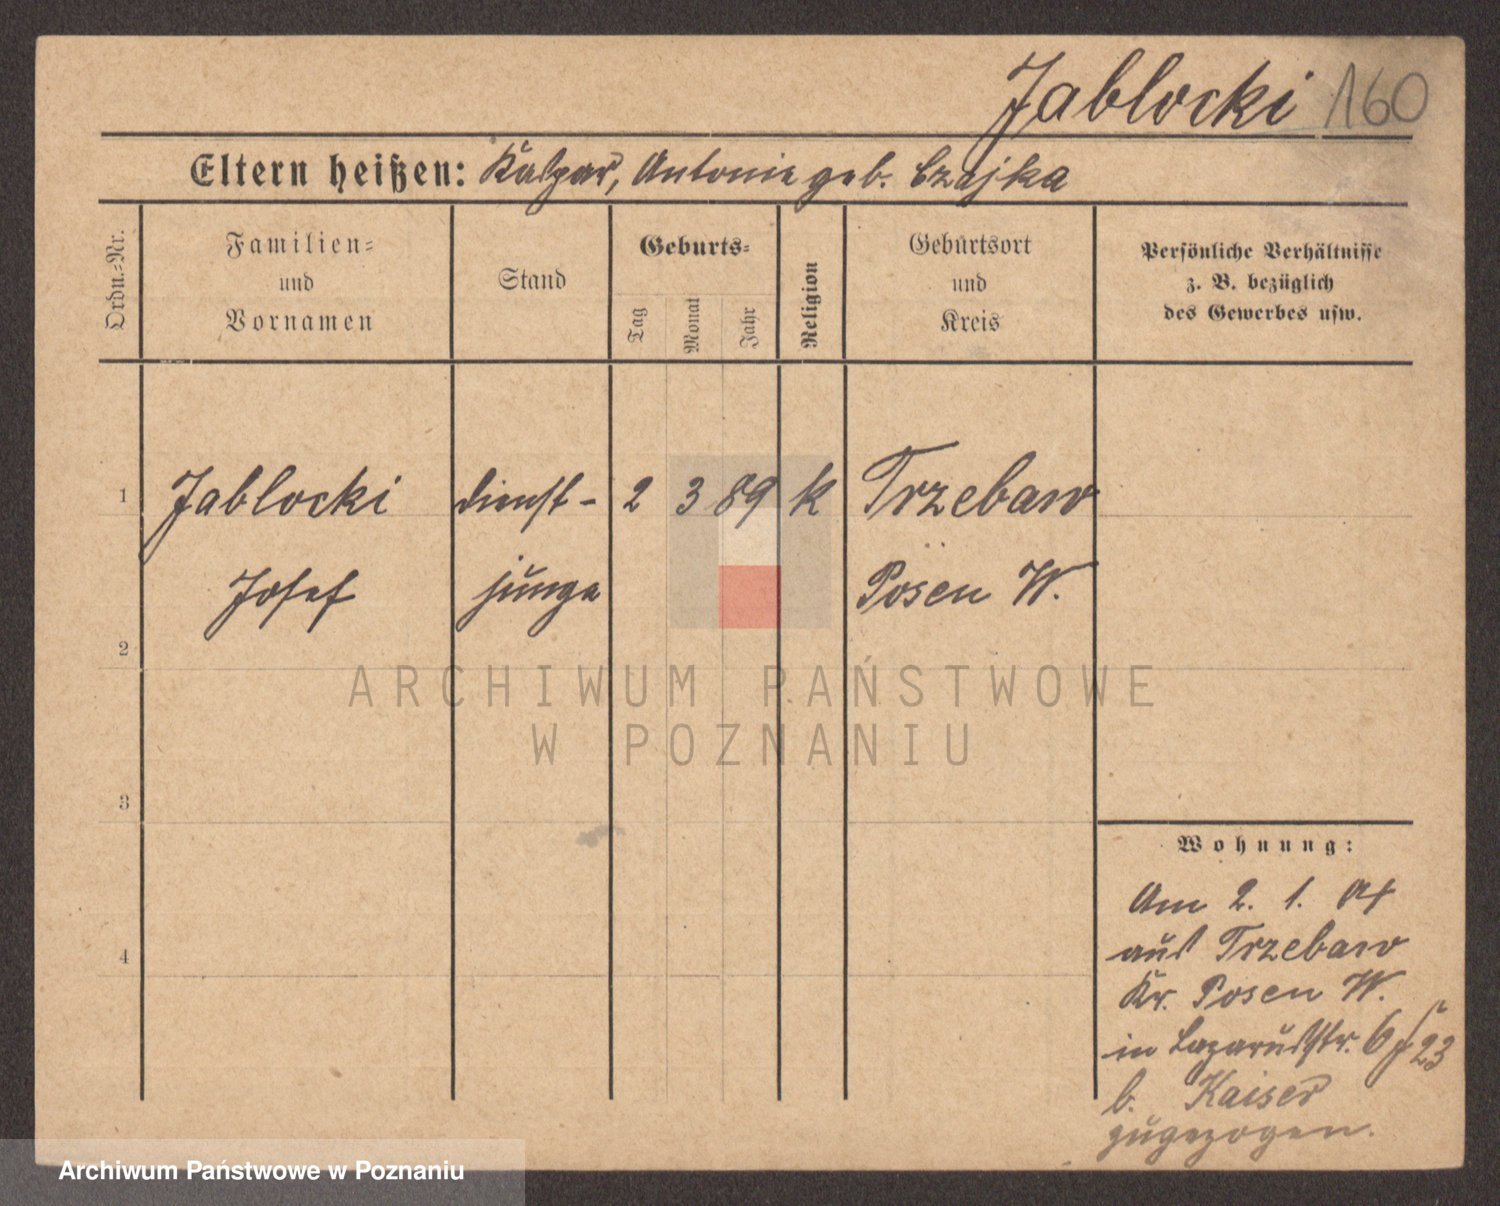 Jablocki 160
Eltern heißen: Kaspar, Antonie geb. Czajka
Ordn.-Nr.
Familien-
und
Vornamen
Stand
Geburts-
Tag
Monat
Jahr
Religion
Geburtsort
und
Kreis
Persönliche Verhältnisse
z. B. bezüglich
des Gewerbes usw.
1 Jablocki Dienst- 2 3 89 K Trzebaw
Josef junge Posen W.
2
3
4
Wohnung:
Am 2. 1. 04
aus Trzebaw
Kr. Posen W.
in Lazarusstr. 6 23
b. Kaiser
zugezogen.
ARCHIWUM PAŃSTWOWE
W POZNANIU
Archiwum Państwowe w Poznaniu